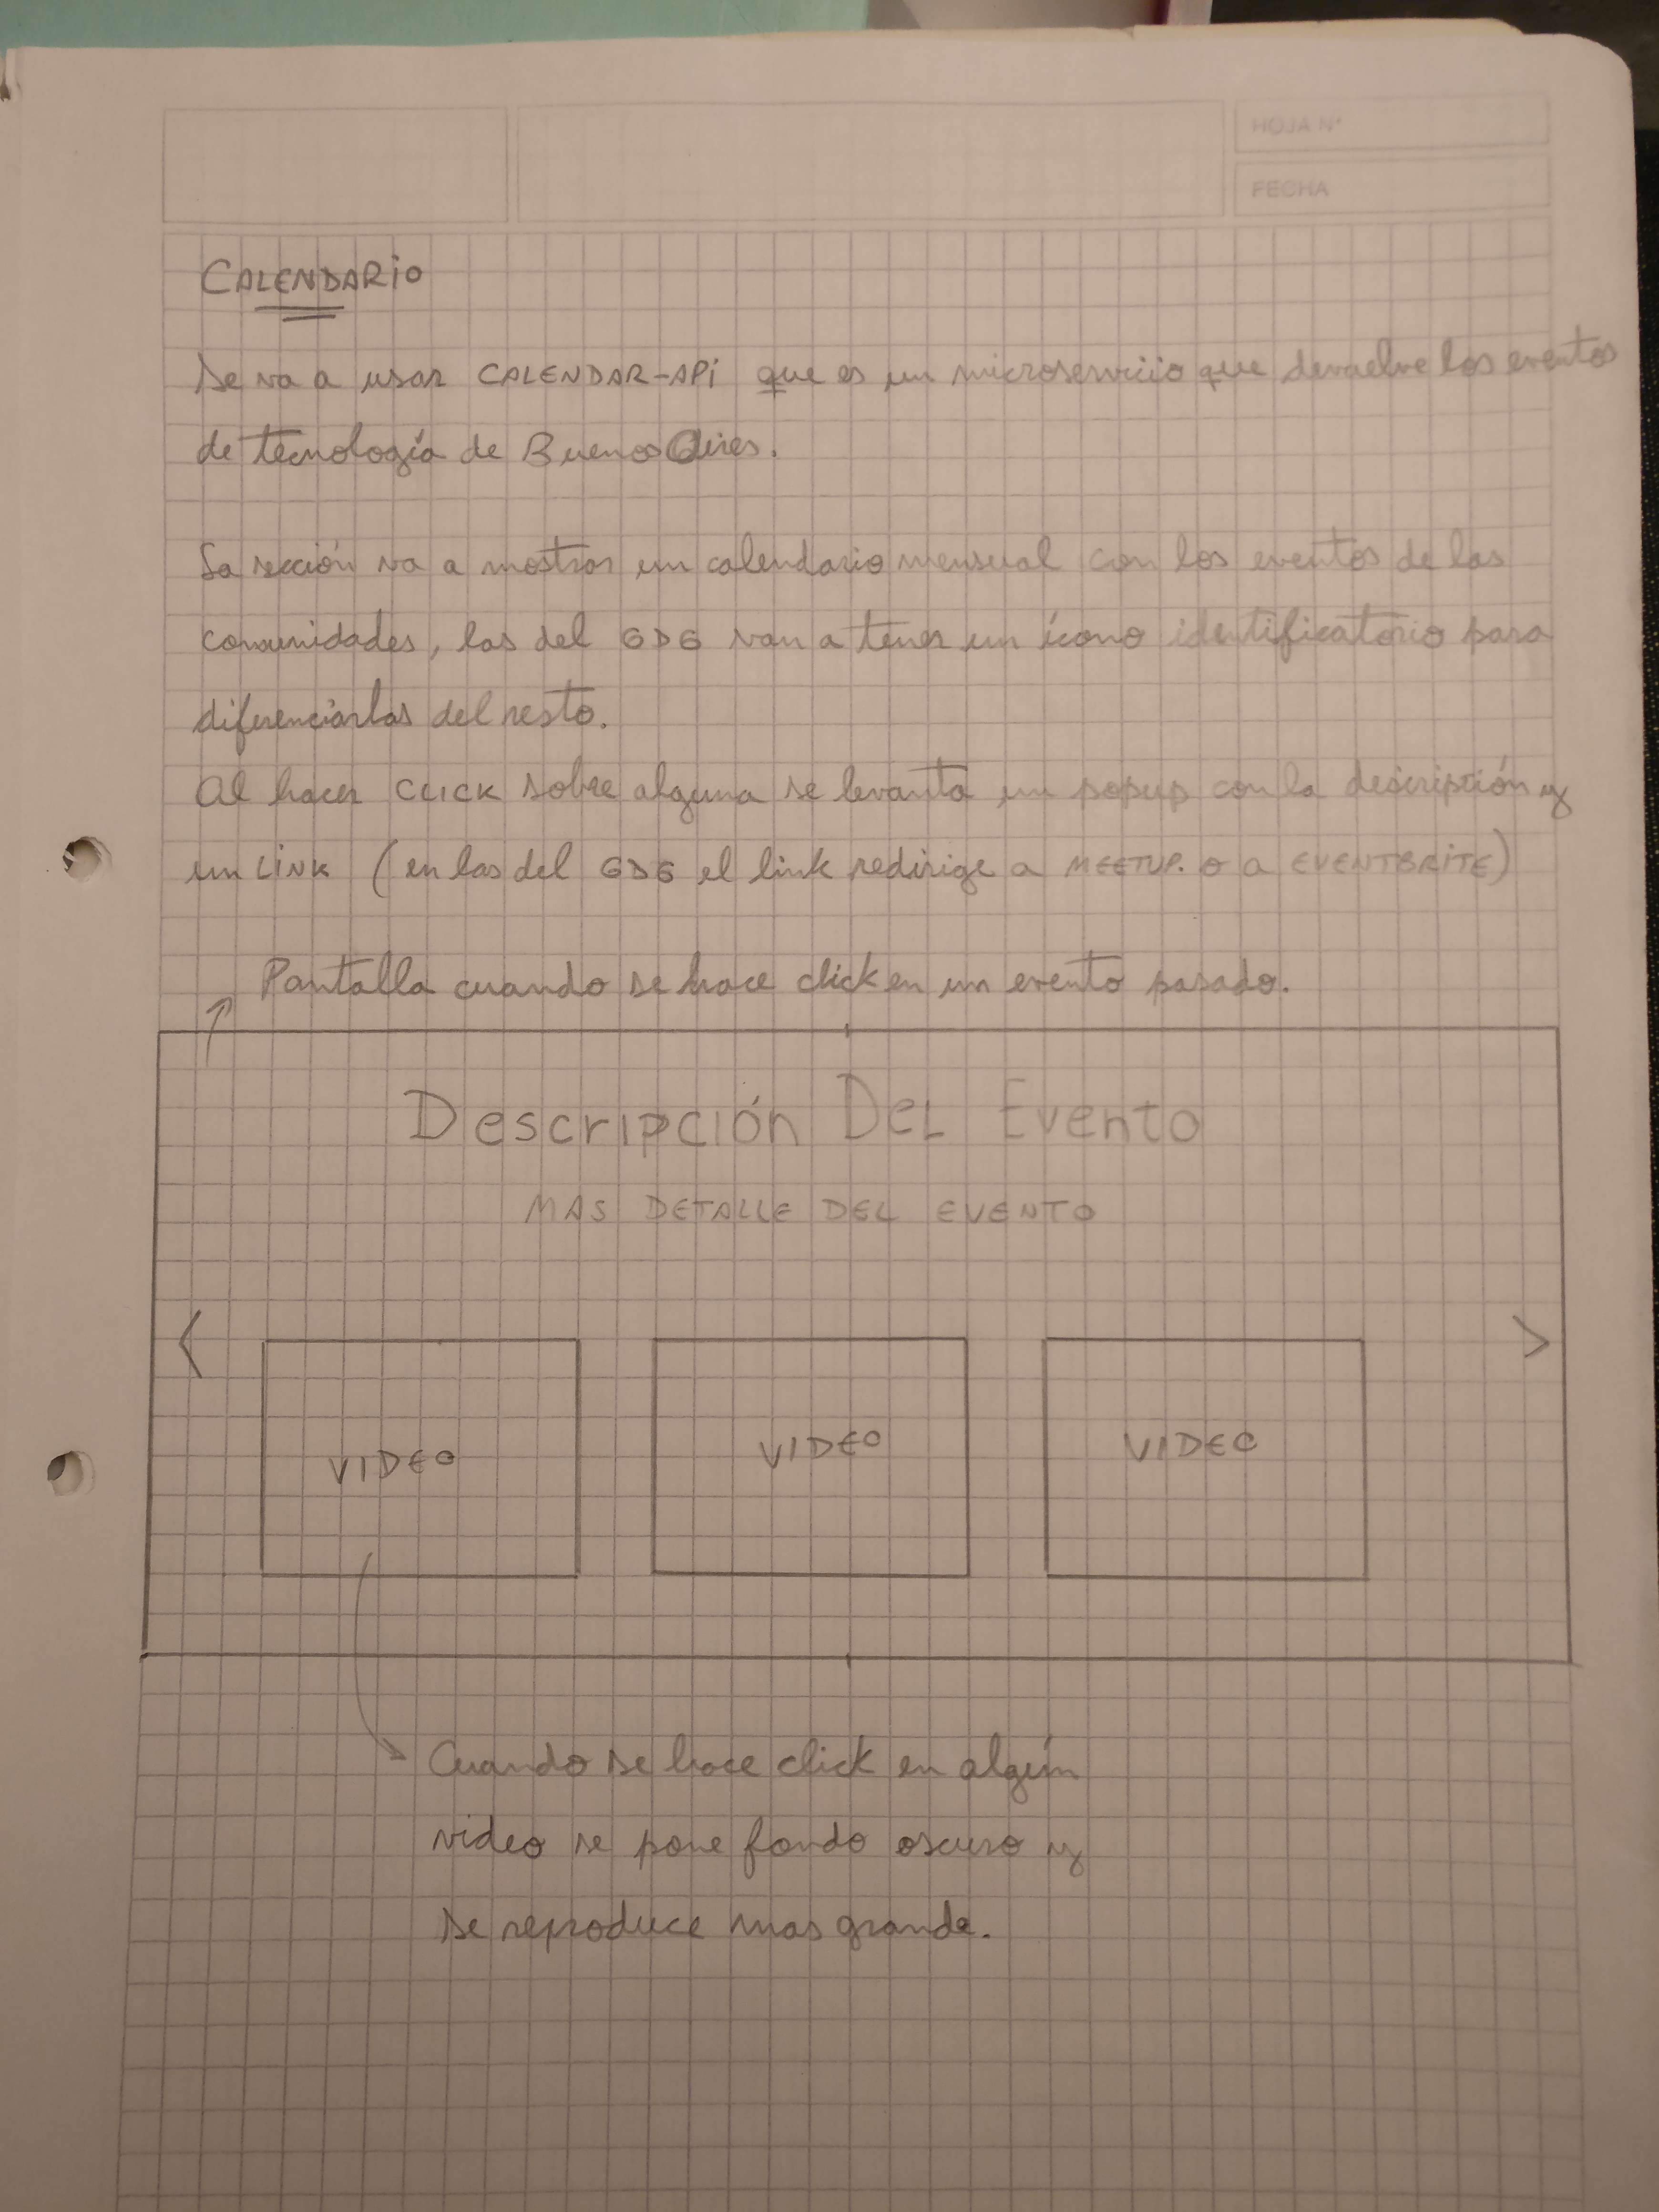 HOJA N°
FECHA
CALENDARIO
Se va a usar CALENDAR-APi que es un microservicio que devuelve los eventos
de tecnología de Buenos Aires.
La sección va a mostrar un calendario mensual con los eventos de las
comunidades, las del GDG van a tener un ícono identificatorio para
diferenciarlas del resto.
Al hacer CLICK sobre alguna se levanta un popup con la descripción y
un LiNK (en las del GDG el link redirige a MEETUP. o a EVENTBRITE)
Pantalla cuando se hace click en un evento pasado.
Descripción Del Evento
MAS DETALLE DEL EVENTO
< >
VIDEO VIDEO VIDEO
Cuando se hace click en algún
video se pone fondo oscuro y
se reproduce mas grande.